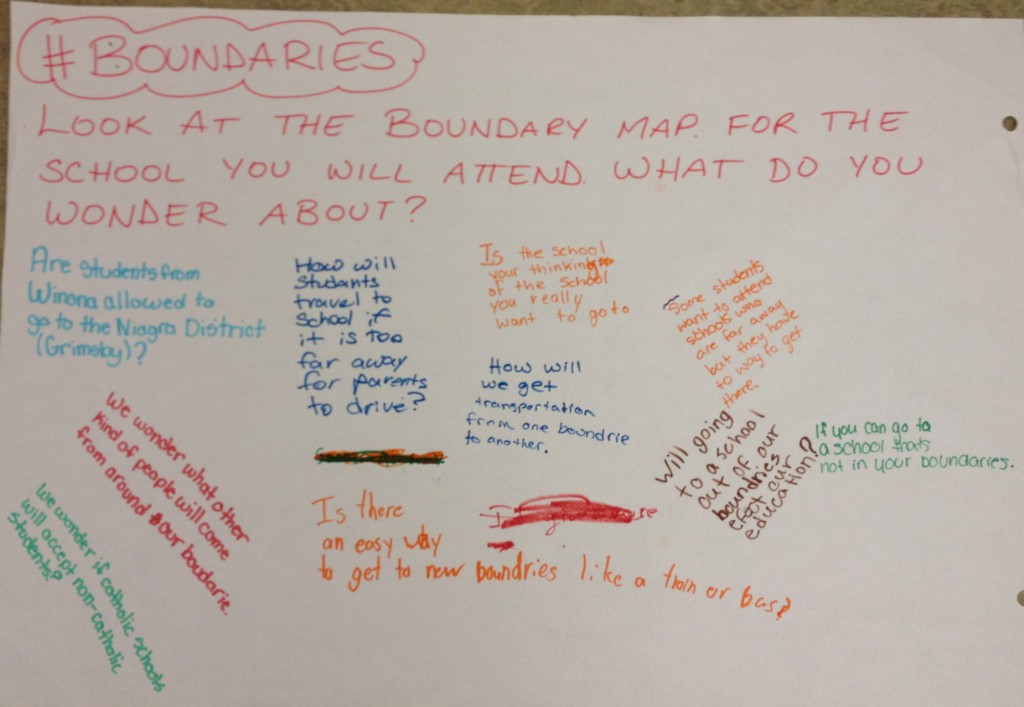 # BOUNDARIES
LOOK AT THE BOUNDARY MAP. FOR THE
SCHOOL YOU WILL ATTEND. WHAT DO YOU
WONDER ABOUT?
Are students from
Winona allowed to
go to the Niagra District
(Grimsby)?
How will
students
travel to
school if
it is too
far away
for parents
to drive?
Is the school
your thinking
of the school
you really
want to go to
Some students
want to attend
schools who
are far away
but they have
to way to get
there
How will
we get
transportation
from one boundrie
to another.
Will going
to a school
out of our
boundries
efect our
education?
If you can go to
a school thats
not in your boundaries.
We wonder what other
kind of people will come
from around #our boudarie.
We wonder if catholic schools
will accept non-catholic
students?
Is there
an easy way
to get to new boundries like a train or bus?